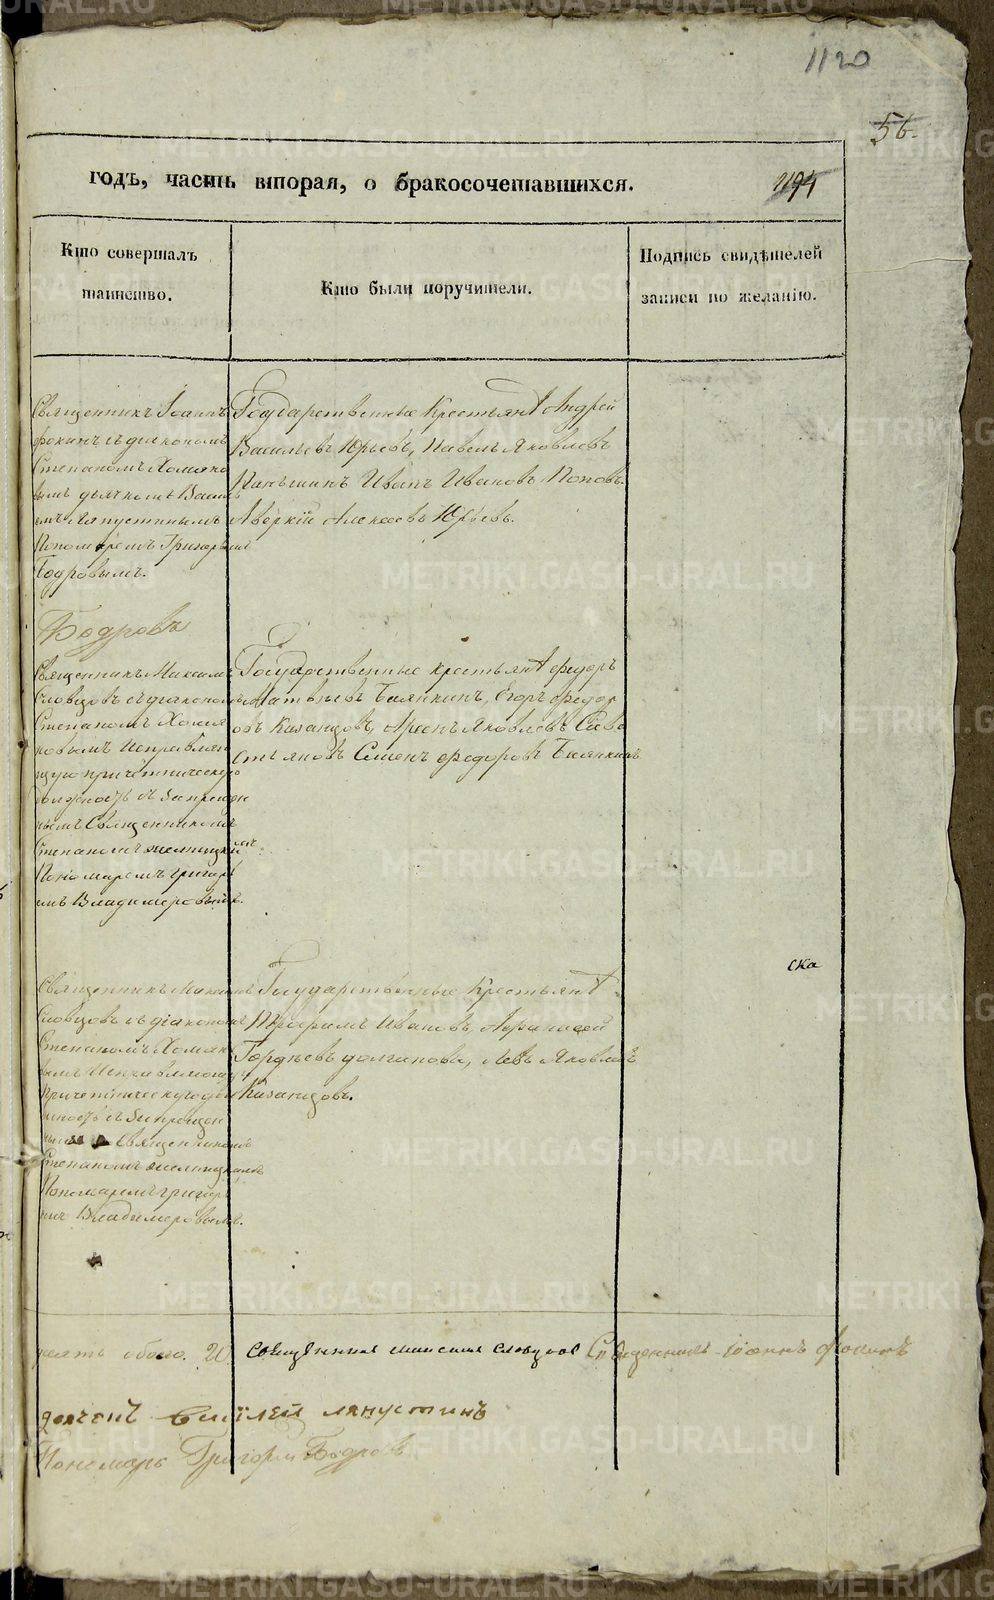 1120
56.
годъ, часть вторая, о бракосочетавшихся.
1194
Кто совершалъ
таинство.
Кто были поручители.
Подпись свидѣтелей
записи по желанію.
Священникъ Іоаннъ
Фокинъ съ діакономъ
Степаномъ Хомяко
вымъ дьячкомъ Васил
емъ Ляпустинымъ
Пономаремъ Григорьемъ
Бодровымъ.
Государственные Крестьянѣ Андрей
Васильевъ Юрьевъ, Павелъ Яковлевъ
Паньшинъ Иванъ Ивановъ Поповъ
Аверкій Алексѣевъ Юрьевъ.
Бодровъ
Священникъ Максимъ
Словцовъ съ діакономъ
Степаномъ Хомя
ковымъ Исправляю
щую причетническую
должность съ Запрещен
нымъ Священникомъ
Степаномъ
Пономаремъ Григорь
емъ Владимеровымъ.
Государственные крестьянѣ Федоръ
Матвѣевъ Бялкинъ, Егоръ Федор
овъ Казанцовъ, Яковлевъ Сева
стьяновъ Семенъ Федоровъ Бялкинъ
Священникъ Максимъ
Словцовъ съ діакономъ
Степаномъ Хомяко
вымъ Исправляющ
Причетническую дол
жность съ Запрещен
нымъ Священникомъ
Степаномъ
Пономаремъ Григорь
емъ Владимеровымъ.
Государственные Крестьянѣ
Трофимъ Ивановъ, Афанасей
Гордѣевъ Долгановы, Левъ Яковлевъ
Казанцовъ.
ска
Священникъ Максимъ Словцовъ Священникъ Іоаннъ Фокинъ
дячекъ Василей Ляпустинъ
Пономарь Григорій Бодровъ
METRIKI.GASO-URAL.RU